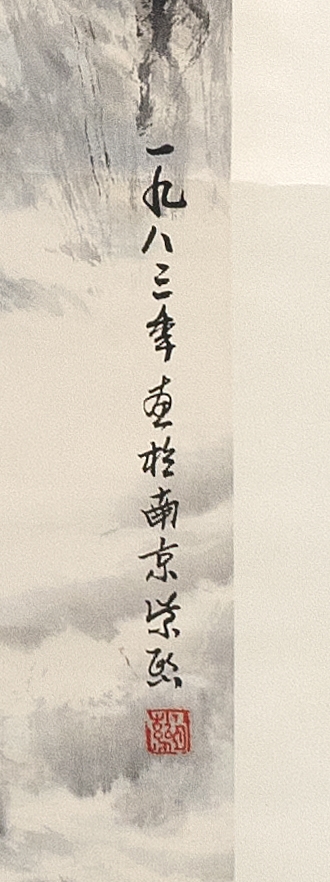 一九八三年画於南京紫熙